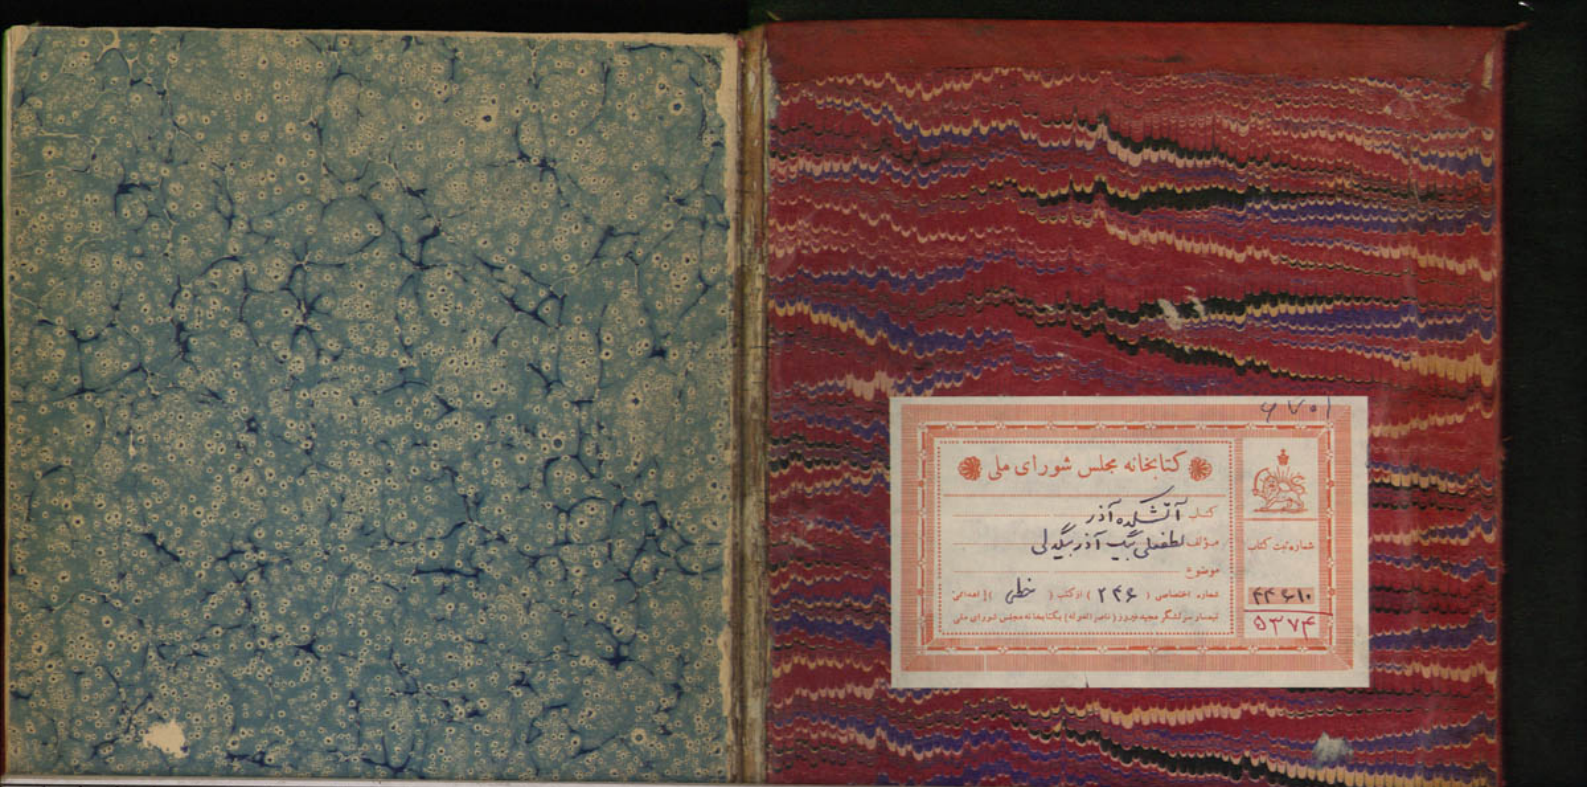 ۶۷۰۱
کتابخانه مجلس شورای ملی
کتاب آتشکده آذر
مؤلف لطفعلی بیگ آذر بیگدلی
موضوع
شماره اختصاصی ( ۲۴۶ ) از کتب ( خطی ) اهدائی:
تیمسار سرلشگر مجید فیروز (ناصرالدوله) بکتابخانه مجلس شورای ملی
شماره ثبت کتاب
۴۴۶۱۰
۵۳۷۴